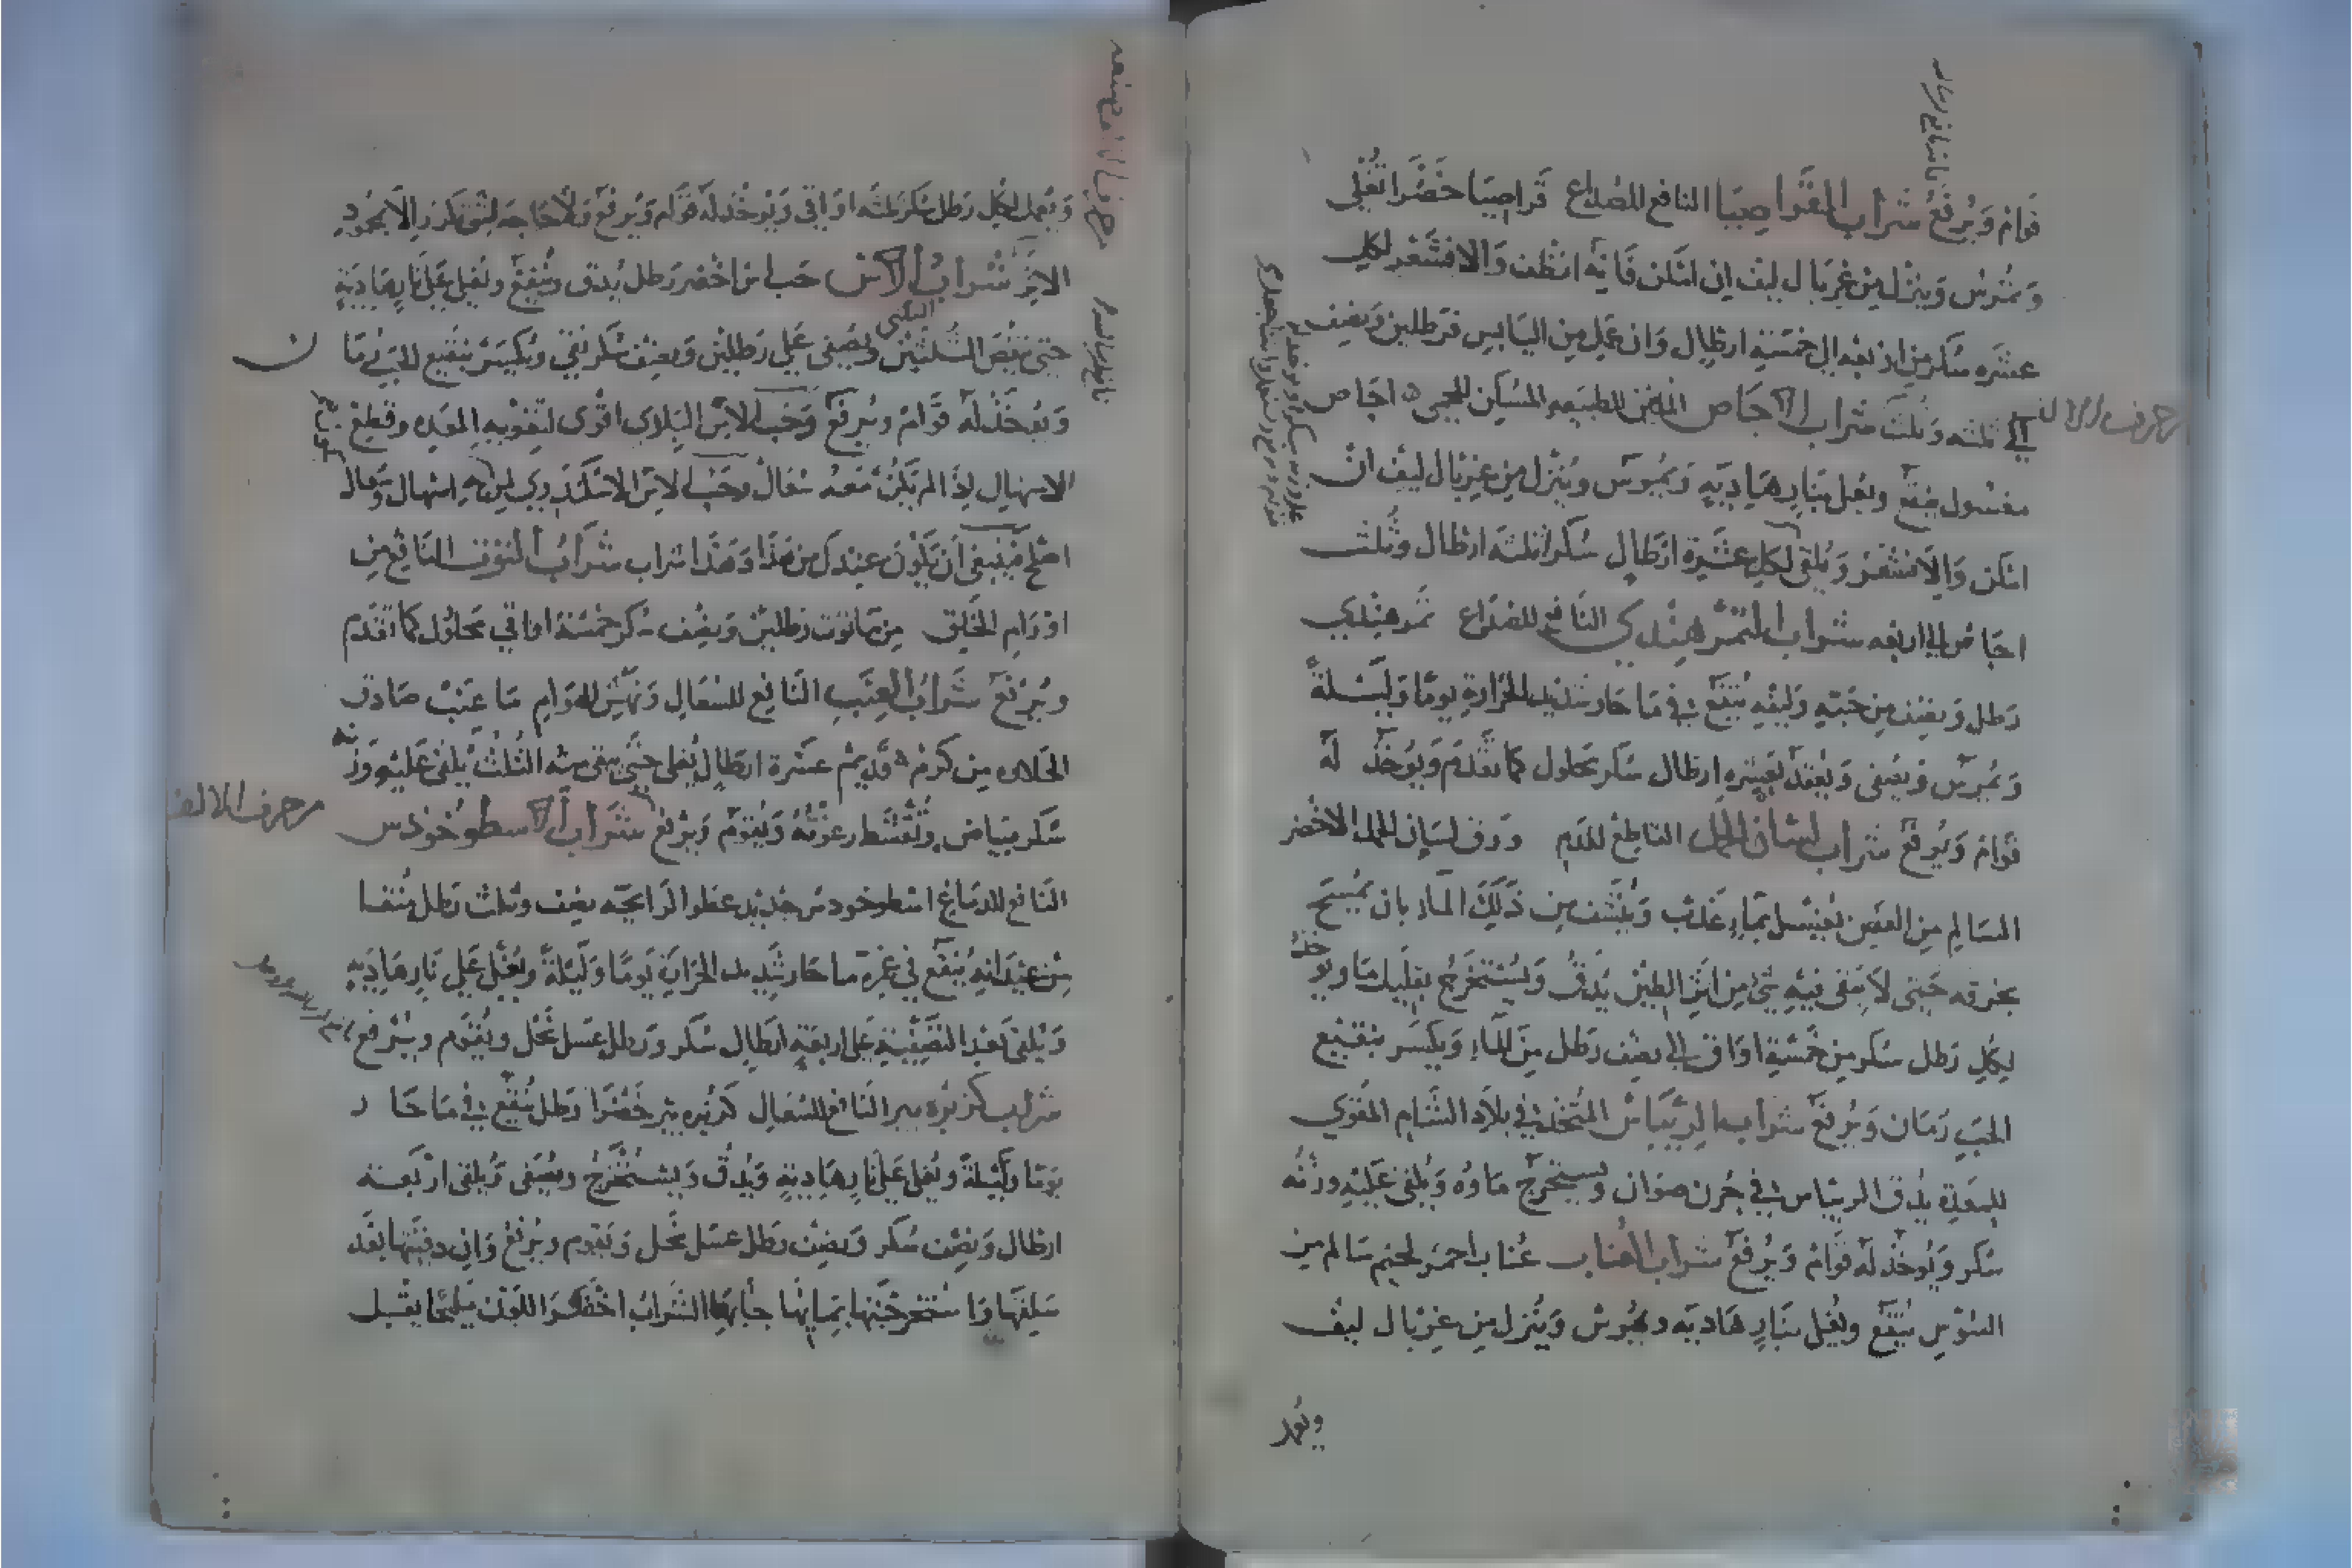 قوام ويرفع شراب القراصيا النافع للصداع قراصيا خضرا تغلي
وتمرس وينزل من غربال ليف ان امكن فانه انظف والا فشعر لكل
عشره سكر من اربعه الى خمسة ارطال وان عمل من اليابس فرطلين ونصف
الى ثلثه وثلث شراب الاجاص الملين للطبيعه المسكن للحمى اجاص
مغسول ينقع ويغلى بنار هاديه ويمرس وينزل من غربال ليف ان
امكن والا فشعر ويلقى لكل عشرة ارطال سكر ثلثه ارطال وثلث
اجاص الى اربعه شراب التمر هندي النافع للصداع تمر هندي
رطل ونصف من حبه وليفه ينقع في ما حار شديد الحرارة يوما وليلة
ويمرس ويصفى ويعقد بعشره ارطال سكر محلول كما تقدم ويوخذ له
قوام ويرفع شراب لسان الحمل القاطع للدم ورق لسان الحمل الاخضر
السالم من العفن يغسل بماء عذب وينشف من ذلك الماء بان يمسح
بخرقه حتى لا يبقى فيه شي من اثر الطين يدق ويستخرج بقليل ما ويوخذ
لكل رطل سكر من خمسة اواق الى نصف رطل من الماء ويكسر بنقيع
الحب رمان ويرفع شراب الريباس المتخذ في بلاد الشام المقوي
للمعدة يدق الريباس في جرن صوان ويستخرج ماوه ويلقى عليه وزنه
سكر ويوخذ له قوام ويرفع شراب العناب عناب احمر لحيم سالم من
السوس ينقع ويغلى بنار هاديه ويمرس وينزل من غربال ليف
ويعمل
ويعمل لكل رطل سكر ثلثه اواقي ويوخذ له قوام ويرفع ولا حاجه لتكرر الا بجرد
الاخر شراب الاس حب اس اخضر رطل يدق وينقع ويغلى على نار هاديه
حتى ينقص الثلثين ويصفى على رطلين ونصف سكر نقي ويكسر بنقيع الحب رمان
ويوخذ له قوام ويرفع وحب الاس البلدي اقوى لتقويه المعده وقطع
الاسهال اذا لم يكن معه سعال وحب الاس الاسكندري لمن به اسهال وسعال
اصلح فينبغي ان يكون عندك من هذا وهذا شراب شراب التوت النافع من
اورام الحلق من ما توت رطلين ونصف سكر خمسة اواقي محلول كما تقدم
ويرفع شراب العنب النافع للسعال ونهش الهوام ما عنب صادق
الحلاوه من كرم قديم عشرة ارطال يغلى حتى يبقى منه الثلث يلقى عليه وزنه
سكر بياض وتقشط رغوته ويقوم ويرفع شراب اسطوخودس
النافع للدماغ اسطوخودس جديد عطر الرائحه نصف وثلث رطل ينقا
من عيدانه ينقع في غمره ما حار شديد الحراره يوما وليلة ويغلى على نار هاديه
ويلقى بعد التصفية على اربعة ارطال سكر ورطل عسل نحل ويقوم ويرفع
شراب كزبره بير النافع للسعال كزبره بير خضرا رطل ينقع في ما حار
يوما وليلة ويغلى على نار هادية ويدق ويستخرج ويصفى ويلقى اربعة
ارطال ونصف سكر ونصف رطل عسل نحل ويقوم ويرفع وان دقيتها بعد
سلقها واستخرجتها بمايها جا بها الشراب اخضر اللون مليحا يقبل
من حرف الالف